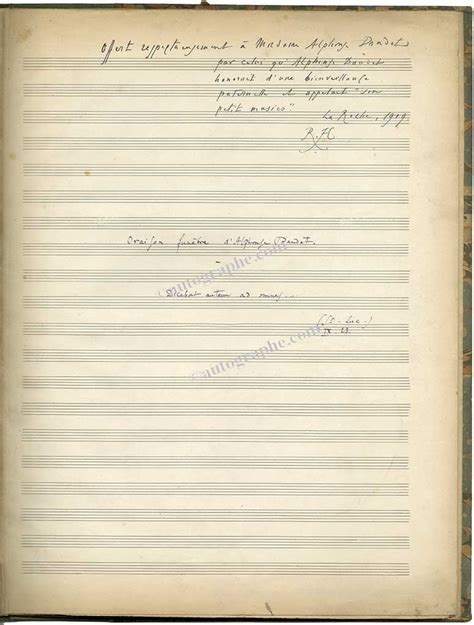 Offert respectueusement à Madame Alphonse Daudet
par celui qu'Alphonse Daudet
honorait d'une bienveillance
paternelle et appelait "son
petit musico".
La Roche, 1909
R.H
Oraison funèbre d'Alphonse Daudet.
Dicebat autem ad omnes...
(S. Luc.)
IX. 23.
©autographe.com
©autographe.com